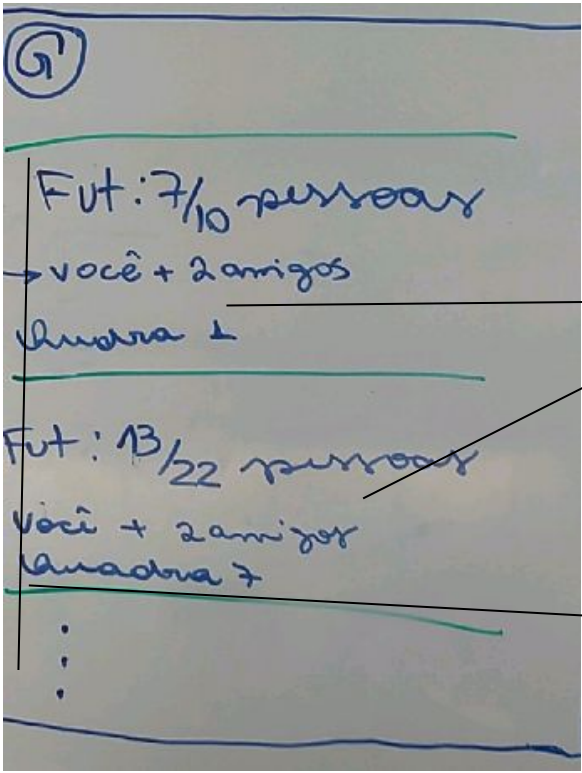 G
Fut: 7/10 pessoas
→ você + 2 amigos
Quadra 1
Fut: 13/22 pessoas
você + 2 amigos
Quadra 7